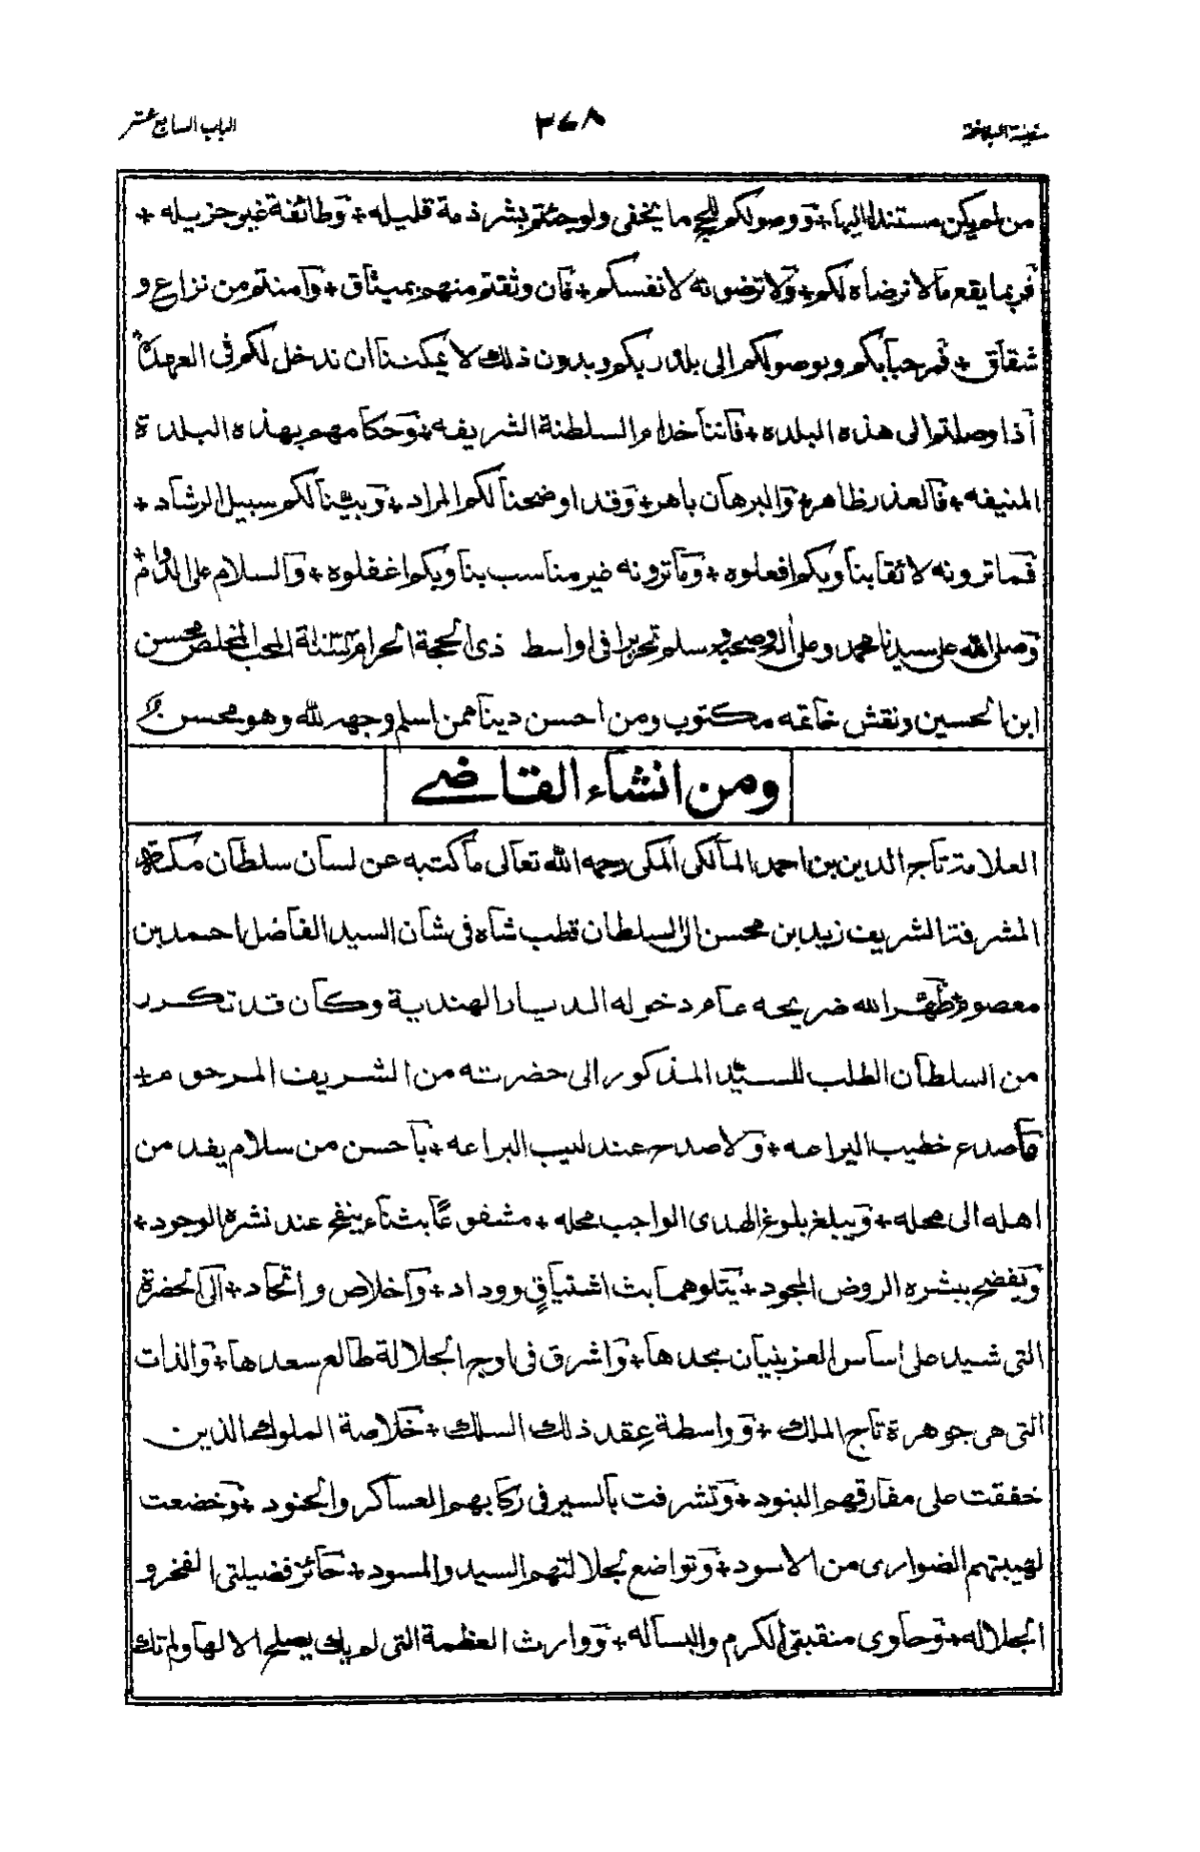 سفينة البلاغة
٣٤٨
الباب السابع عشر
من لم يكن مستندا اليها + ووصولكم للحج ما يخفى ولو جئتم بشرذمة قليله + وطائفة غير جزيله +
فربما يقع ما لا نرضاه لكم + ولا ترضونه لانفسكم + فان وثقتم منهم بميثاق + وآمنتم من نزاع و
شقاق + فمرحبا بكم وبوصولكم الى بلد ربكم وبدون ذلك لا يمكننا ان ندخل لكم فى العهدة
اذا وصلتم الى هذه البلده + فاننا خدام السلطنة الشريفه + وحكامهم بهذه البلدة
المنيفه + فالعذر ظاهر + والبرهان باهر + وقد اوضحنا لكم المراد + وبيّنا لكم سبيل الرشاد +
فما ترونه لائقا بنا وبكم افعلوه + وما ترونه غير مناسب بنا وبكم اغفلوه + والسلام على الدوام +
وصلى الله على سيدنا محمد وعلى اله وصحبه وسلم تحريرا فى اواسط ذى الحجة الحرام المحب المخلص محسن
ابن الحسين ونقش خاتمه مكتوب ومن احسن دينا ممن اسلم وجهه لله وهو محسن
ومن انشاء القاضے
العلامة تاج الدين بن احمد المالكى المكى رحمه الله تعالى ما كتبه عن لسان سلطان مكة
المشرفة الشريف زيد بن محسن الى السلطان قطب شاه فى شان السيد الفاضل احمد بن
معصوم طهّر الله ضريحه عام دخوله الديار الهندية وكان قد تكرر
من السلطان الطلب للسيّد المذكور الى حضرته من الشريف المرحوم +
ما صدع خطيب اليراعه + ولا صدح عندليب البراعه + باحسن من سلام يفد من
اهله الى محله + ويبلغ بلوغ الهدى الواجب محله + مشفوعًا بثناء ينفح عند نشره الوجود +
ويفضح ببشره الروض المجود + يتلوهما بث اشتياقٍ ووداد + واخلاص واتحاد + الى الحضرة
التى شيد على اساس العز بنيان مجدها + واشرق فى اوج الجلالة طالع سعدها + والذات
التى هى جوهرة تاج الملك + وواسطة عِقد ذلك السلك + خلاصة الملوك الذين
خفقت على مفارقهم البنود + وتشرفت بالسير فى ركابهم العساكر والجنود + وخضعت
لهيبتهم الضوارى من الاسود + وتواضع لجلالتهم السيد والمسود + حائز فضيلتى الفخر و
الجلاله + وحاوى منقبتى الكرم والبساله + ووارث العظمة التى لم يك يصلح الا لها ولم تك